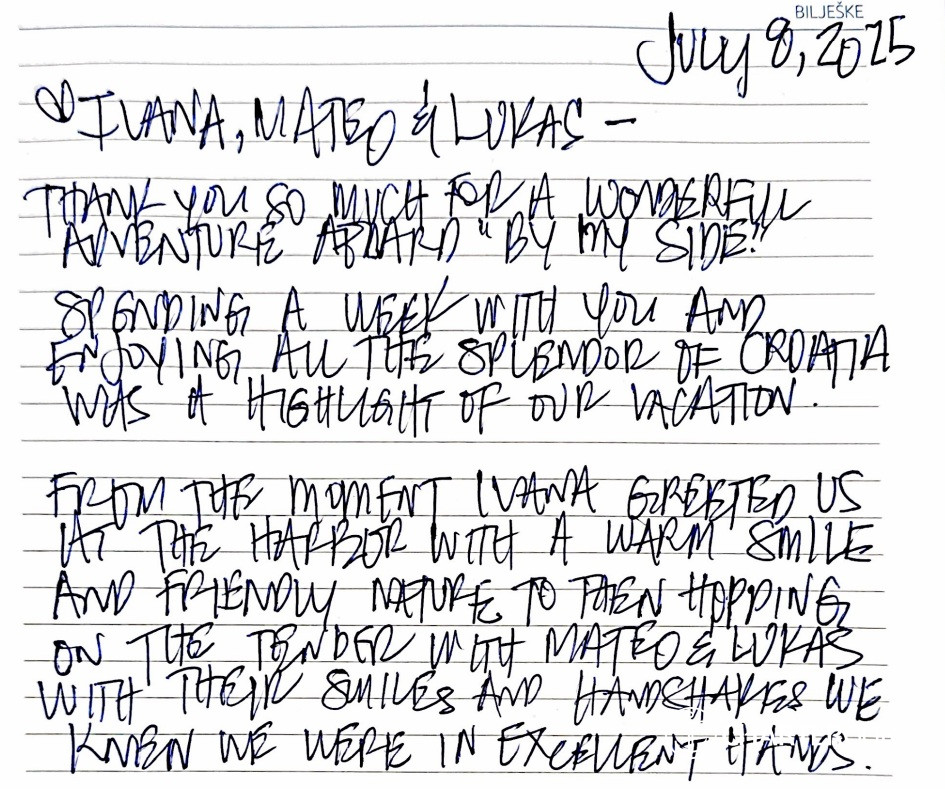 BILJEŠKE
JULY 8, 2025
♡ IVANA, MATEO & LUKAS —
THANK YOU SO MUCH FOR A WONDERFUL
ADVENTURE ABOARD "BY MY SIDE!"
SPENDING A WEEK WITH YOU AND
ENJOYING ALL THE SPLENDOR OF CROATIA
WAS A HIGHLIGHT OF OUR VACATION.
FROM THE MOMENT IVANA GREETED US
AT THE HARBOR WITH A WARM SMILE
AND FRIENDLY NATURE TO THEN HOPPING
ON THE TENDER WITH MATEO & LUKAS
WITH THEIR SMILES AND HANDSHAKES WE
KNEW WE WERE IN EXCELLENT HANDS.